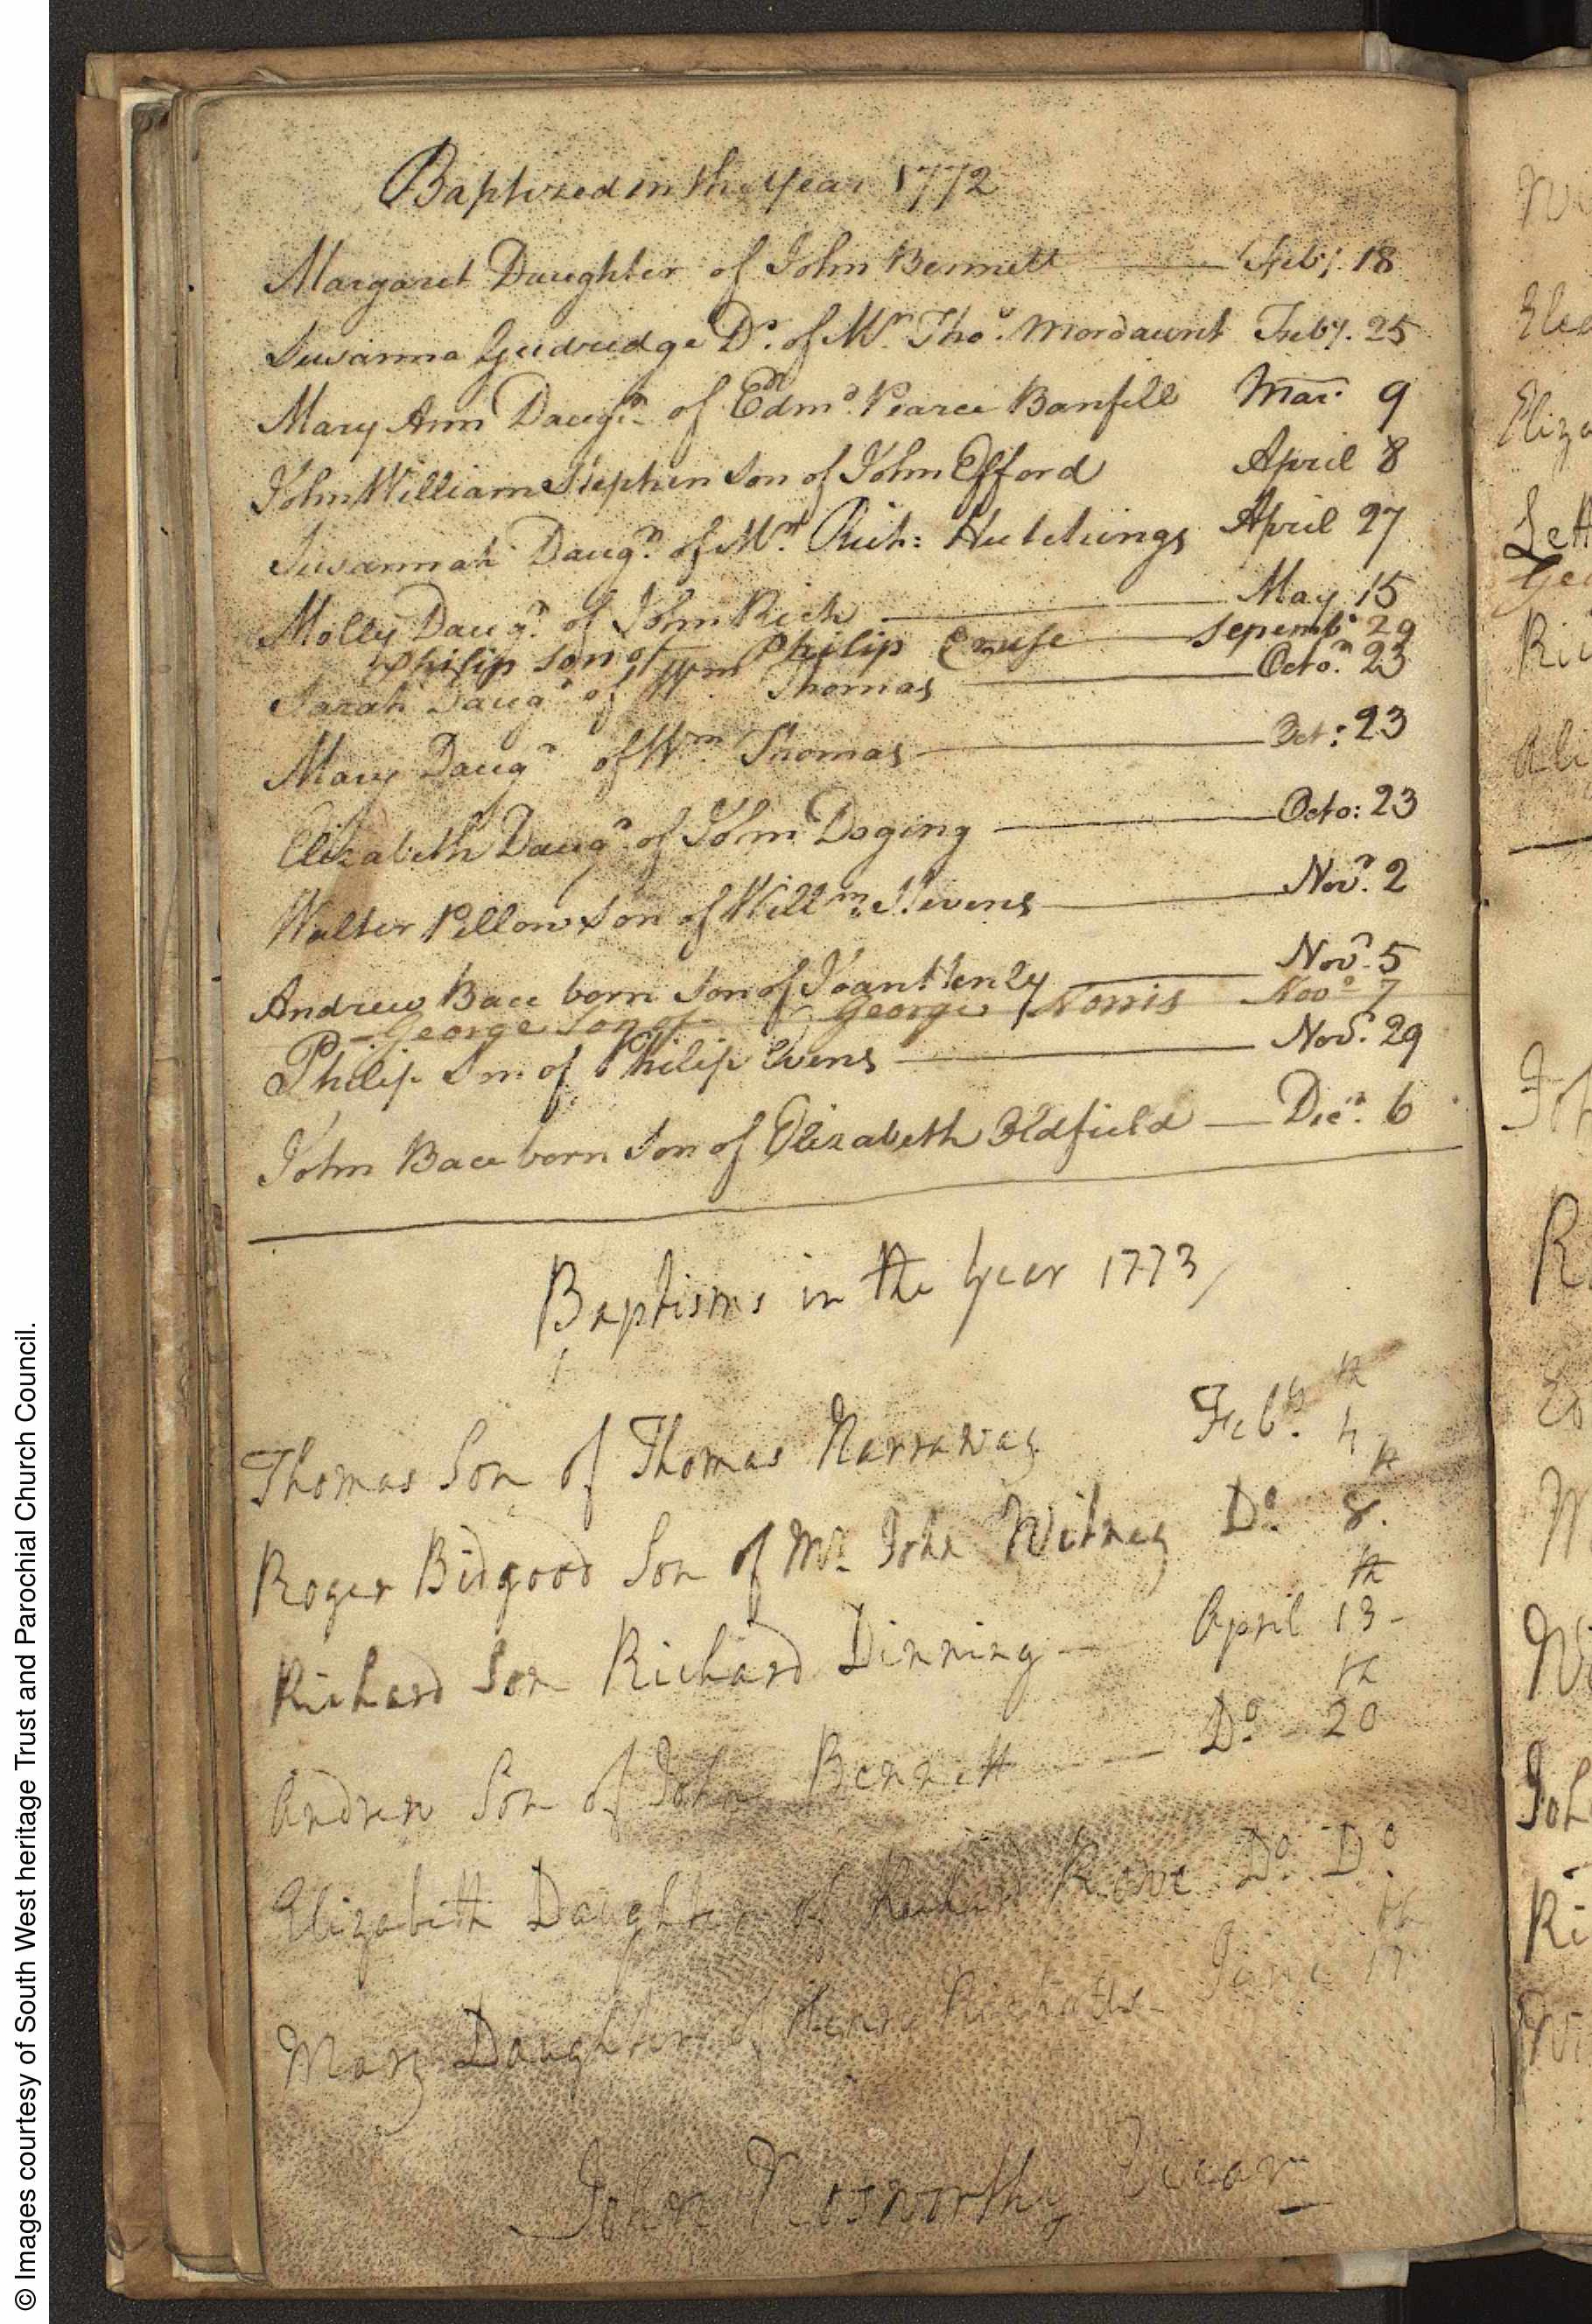 Baptized in the Year 1772
Margaret Daughter of John Bennett Feby. 18
Susanna Gudridge Dr. of Mr. Thos. Mordaunt Feby. 25
Mary Ann Daugr. of Edmd. Pearce Banfill Mar. 9
John William Stephen Son of John Efford April 8
Susannah Daugr. of Mr. Rich: Hutchings April 27
Molly Daugr. of John Rich May 15
Philip Son of Philip Cruse Septembr 29
Sarah Daugr. of Wm. Thomas Octor. 23
Mary Daugr. of Wm. Thomas Oct: 23
Elizabeth Daugr. of John Doging Octo: 23
Walter Pillow Son of Willm. Stevens Novr. 2
Andrew Bace born Son of Joan Henly Novr. 5
George Son of George Norris Novr 7
Philip Son of Philip Evens Novr. 29
John Bace born Son of Elizabeth Oldfield Decr. 6
Baptisms in the Year 1773
Thomas Son of Thomas Narraway Feby. 4th
Roger Bidgood Son of Mr. John Witney Do. 8th.
Richard Son Richard Dinning April 13th
Andrew Son of John Bennett Do. 20th
Elizabeth Daughter of Richard Rowe Do. Do.
Mary Daughter of June 17th
John Nosworthy Vicar
© Images courtesy of South West heritage Trust and Parochial Church Council.